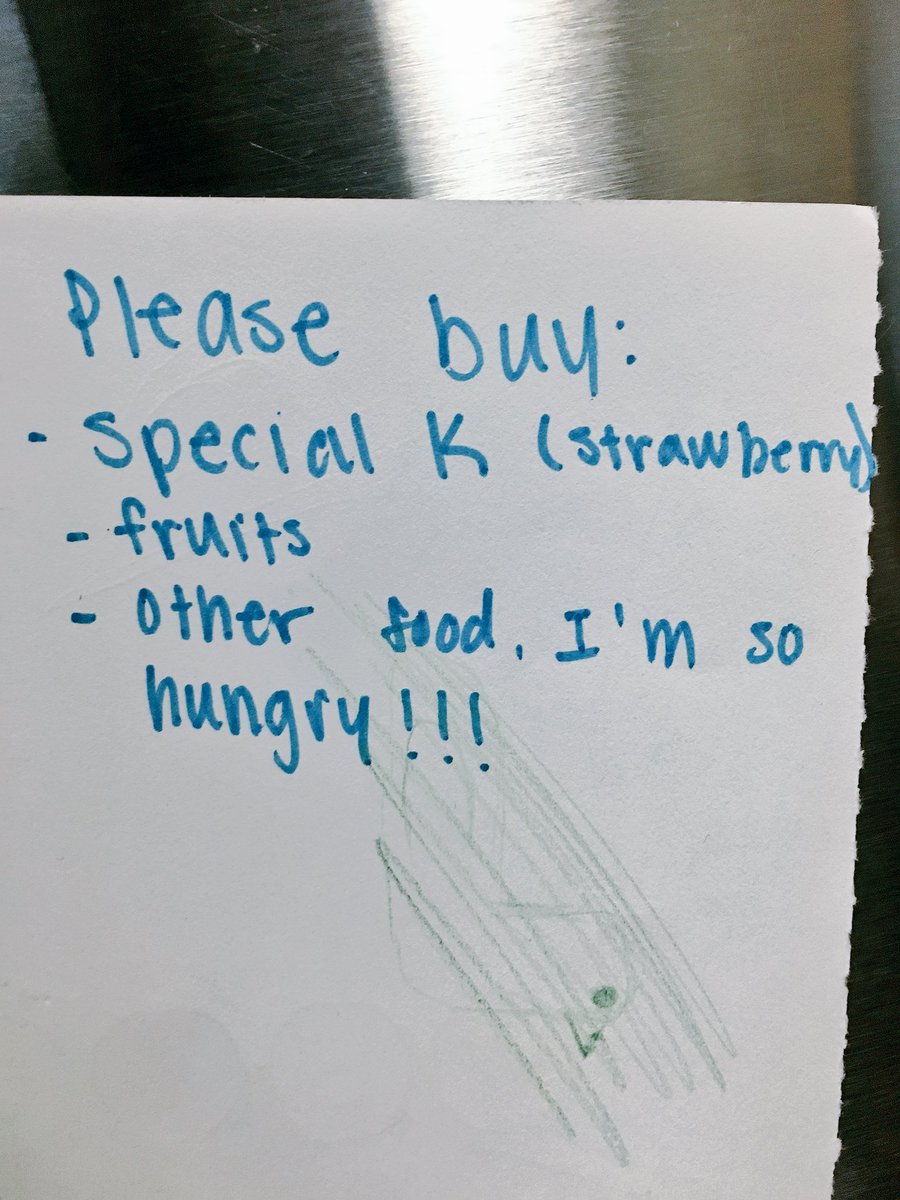 Please buy:
- Special K (strawberry)
- fruits
- other food, I'm so
hungry!!!